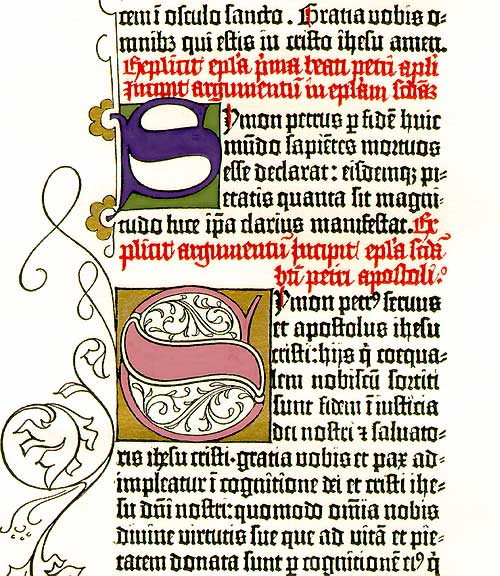 cem ī osculo sancto. Gratia vobis o-
mnibꝫ qui estis in cristo ihesu amen.
Explicit epl'a p̄ma beati petri apli
Incipit argumentū in eplam scdaꝫ
Symon petrus ꝑ fidē huic
mūdo sapiētes mortuos
esse declarat: eisdemqꝫ pi-
etatis quanta sit magni-
tudo luce ip̄a clarius manifestat. Ex
plicit argumentū Incipit epl'a scdā
bti petri apostoli.
Symon petrꝰ servus
et apostolus ihesu
cristi: hijs q̄ coequa-
lem nobiscū sortiti
sunt fidem ī iusticia
dei nostri ⁊ salvato-
ris ihesu cristi. gratia vobis et pax ad-
impleatur ī cognitione dei et cristi ihe-
su dn̄i nostri: quomodo om̄ia nobis
divine virtutis sue que ad vitā et pie-
tatem donata sunt ꝑ cognitionē eiꝰ q̄